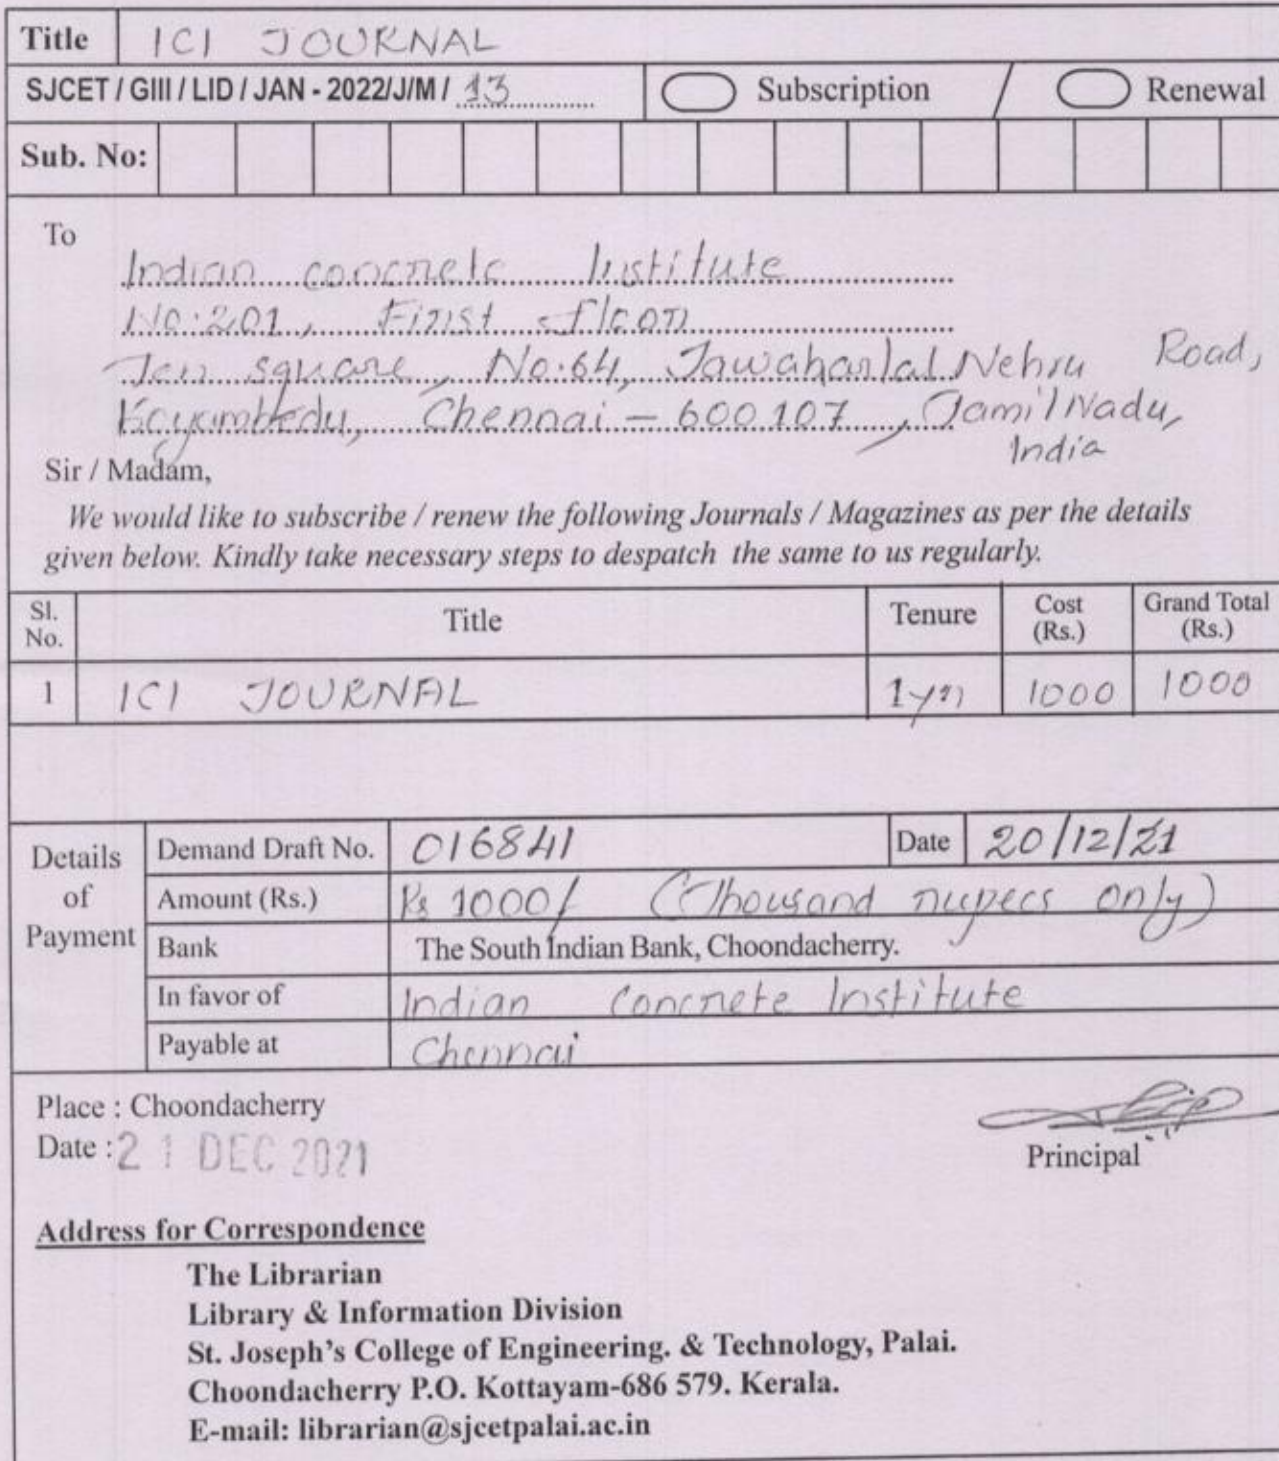 Title ICI JOURNAL
SJCET / GIII / LID / JAN - 2022/J/M / 13 Subscription / Renewal
Sub. No:
To
Indian concrete Institute
No:201, First floor
Jeni square, No:64, Jawaharlal Nehru Road,
Koyambedu, Chennai - 600107, Tamil Nadu,
India
Sir / Madam,
We would like to subscribe / renew the following Journals / Magazines as per the details
given below. Kindly take necessary steps to despatch the same to us regularly.
Sl. No. Title Tenure Cost (Rs.) Grand Total (Rs.)
1 ICI JOURNAL 1yr 1000 1000
Details of Payment
Demand Draft No. 016841 Date 20/12/21
Amount (Rs.) Rs 1000/ (Thousand rupees only)
Bank The South Indian Bank, Choondacherry.
In favor of Indian Concrete Institute
Payable at Chennai
Place : Choondacherry
Date : 21 DEC 2021
Principal
Address for Correspondence
The Librarian
Library & Information Division
St. Joseph's College of Engineering. & Technology, Palai.
Choondacherry P.O. Kottayam-686 579. Kerala.
E-mail: librarian@sjcetpalai.ac.in